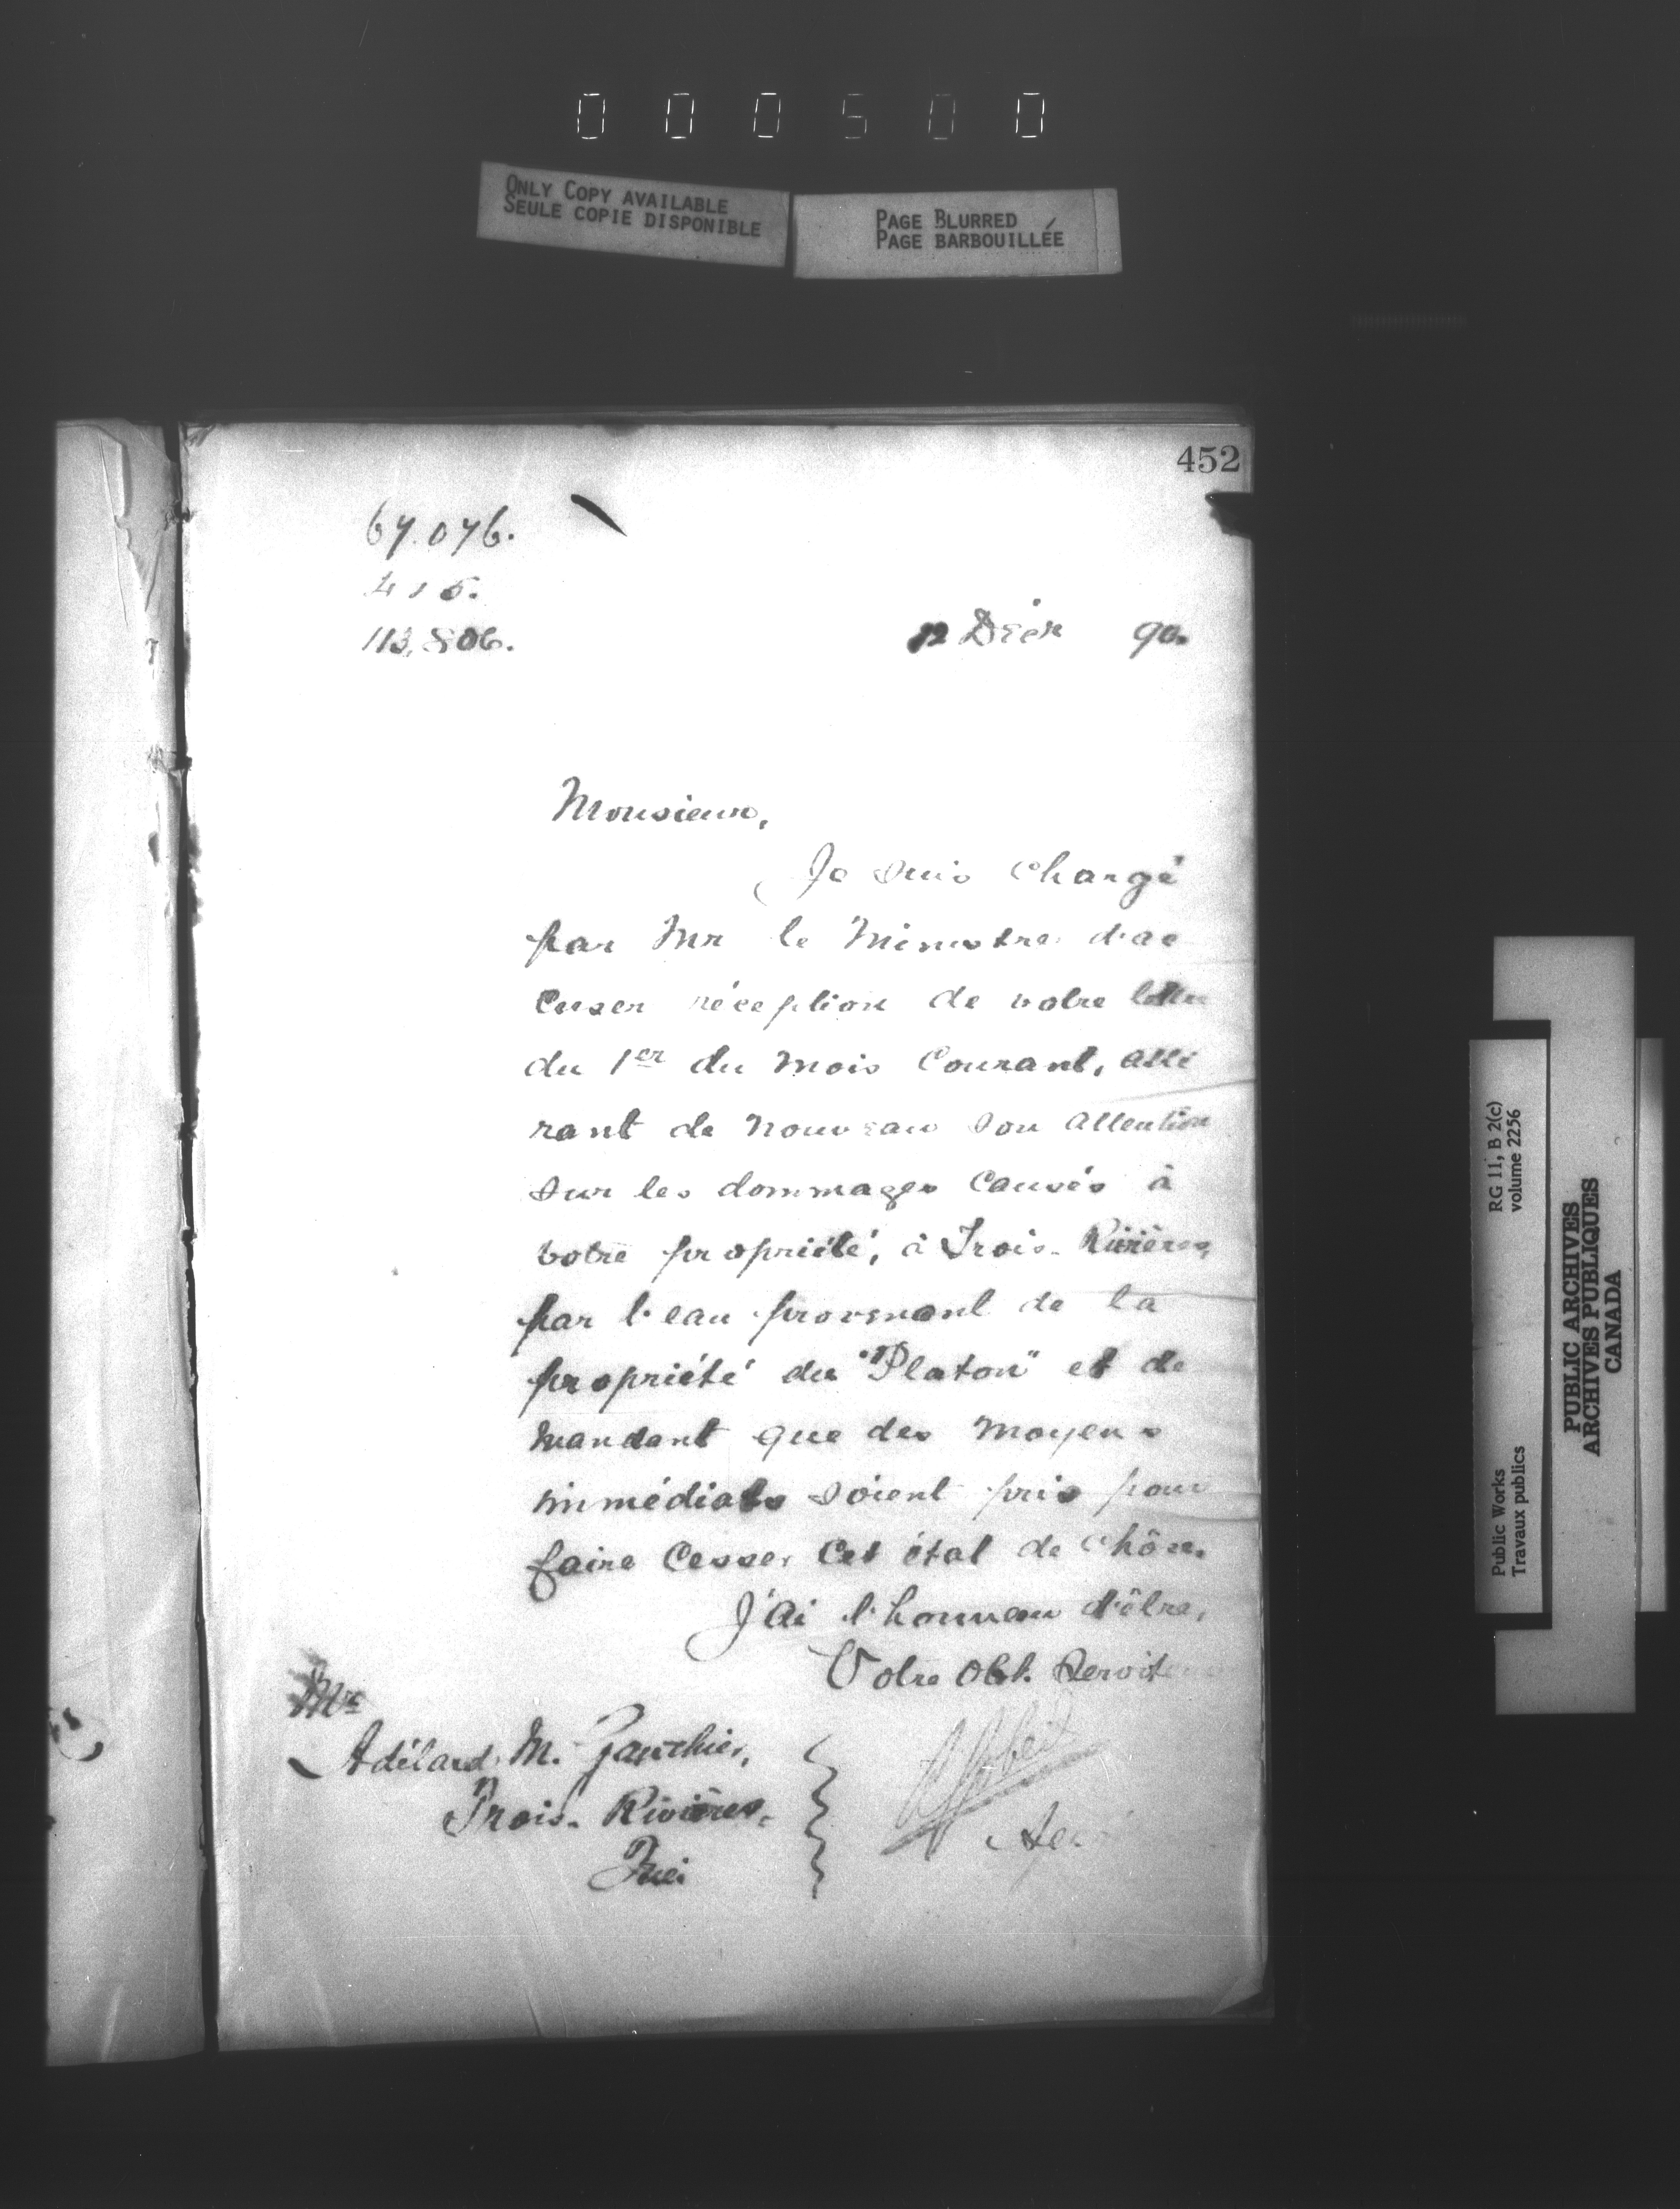 000500
ONLY COPY AVAILABLE
SEULE COPIE DISPONIBLE
PAGE BLURRED
PAGE BARBOUILLÉE
452
67.076.
415.
113,806.
12 Décr 90.
Monsieur,
Je suis chargé
par Mr le Ministre d'ac
cuser réception de votre lettre
du 1er du mois Courant, atti
rant de nouveau son attention
sur les dommages causés à
votre propriété, à Trois-Rivières,
par l'eau provenant de la
propriété du "Platon" et de
mandant que des moyens
immédiats soient pris pour
faire cesser cet état de chôse.
J'ai l'honneur d'être,
Votre Obt. Servit
Mr
Adélard M. Gauthier,
Trois-Rivières,
RG 11, B 2(c)
volume 2256
Public Works
Travaux publics
PUBLIC ARCHIVES
ARCHIVES PUBLIQUES
CANADA